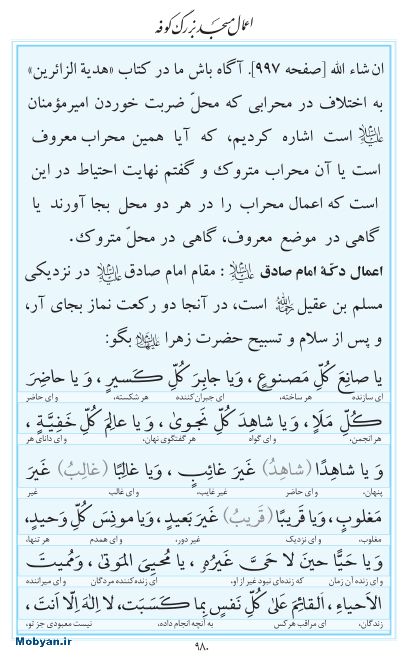 اعمال مسجد بزرگ کوفه
ان شاء الله [صفحه ۹۹۷]. آگاه باش ما در کتاب «هدیة الزائرین»
به اختلاف در محرابی که محلّ ضربت خوردن امیرمؤمنان
علیه‌السلام است اشاره کردیم، که آیا همین محراب معروف
است یا آن محراب متروک و گفتم نهایت احتیاط در این
است که اعمال محراب را در هر دو محل بجا آورند یا
گاهی در موضع معروف، گاهی در محلّ متروک.
اعمال دکّهٔ امام صادق علیه‌السلام : مقام امام صادق علیه‌السلام در نزدیکی
مسلم بن عقیل است، در آنجا دو رکعت نماز بجای آر،
و پس از سلام و تسبیح حضرت زهرا بگو:
یا صانِعَ کُلِّ مَصنوعٍ ، وَیا جابِرَ کُلِّ کَسیرٍ ، وَ یا حاضِرَ
ای سازنده هر ساخته، و ای جبران‌کننده هر شکسته، و ای حاضر
کُلِّ مَلَإٍ، وَ یا شاهِدَ کُلِّ نَجویٰ، وَ یا عالِمَ کُلِّ خَفِیَّةٍ ،
هر انجمن، و ای گواه هر گفتگوی نهان، و ای دانای هر
وَ یا شاهِدًا (شاهِدُ) غَیرَ غائِبٍ، وَیا غالِبًا (غالِبُ) غَیرَ
پنهان، و ای حاضر غیر غایب، و ای غالب غیر
مَغلوبٍ، وَیا قَریبًا (قَریبُ) غَیرَ بَعیدٍ، وَیا مونِسَ کُلِّ وَحیدٍ،
مغلوب، و ای نزدیک غیر دور، و ای همدم هر تنها،
وَ یا حَیًّا حینَ لا حَیَّ غَیرُهُ ، یا مُحیِیَ المَوتیٰ، وَ مُمیتَ
و ای زنده آن زمان که زنده‌ای نبود غیر از او، ای زنده کننده مردگان و ای میراننده
الاَحیاءِ، اَلقائِمَ عَلیٰ کُلِّ نَفسٍ بِما کَسَبَت، لا اِلٰهَ اِلّا اَنتَ،
زندگان، ای مراقب هر کس به آنچه انجام داده، نیست معبودی جز تو،
Mobyan.ir
۹۸۰